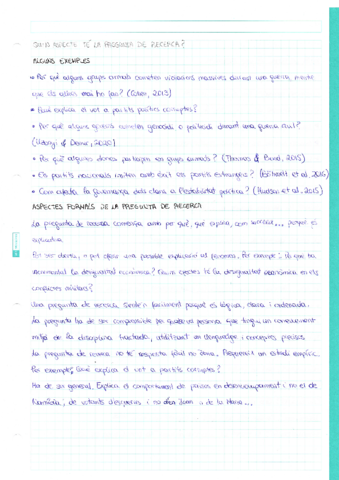 QUIN ASPECTE TÉ LA PREGUNTA DE RECERCA?
ALGUNS EXEMPLES
• Per què alguns grups armats cometen violacions massives durant una guerra, mentre
que els altres mai ho fan? (Cohen, 2013)
• Què explica el vot a partits polítics corruptes?
• Per què alguns governs cometen genocidi o politicidi durant una guerra civil?
(Uzonyi & Demir, 2020)
• Per què algunes dones participen en grups armats? (Thomas & Bond, 2015)
• Els partits nacionals imiten amb èxit els partits estrangers? (et al, 2016)
• Com afecta la governança dels clans a l'estabilitat política? (Hudson et al, 2015)
ASPECTES FORMALS DE LA PREGUNTA DE RECERCA
La pregunta de recerca comença amb per què, què explica, com ... perquè és
explicativa.
Pot ser oberta, o pot oferir una possible explicació al fenomen. Per exemple: què ha
incrementat la desigualtat econòmica? Quin efecte té la desigualtat econòmica en els
conflictes armats?
Una pregunta de recerca s'entén fàcilment perquè és lògica, clara i ordenada.
La pregunta ha de ser comprensible per qualsevol persona que tingui un coneixement
mitjà de la disciplina tractada, utilitzant un llenguatge i conceptes precisos.
La pregunta de recerca no té resposta fins no Prepararem un estudi empíric.
Per exemple, què explica el vot a partits corruptes?
Ha de ser general. Explica el comportament de països en desenvolupament i no el de
Namíbia; de votants i no d'en Joan o de la Maria...